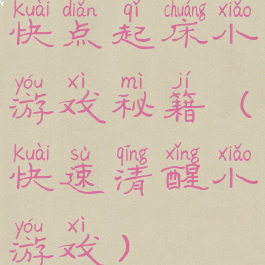 kuài diǎn qǐ chuáng xiǎo
快点起床小
yóu xì mì jí
游戏秘籍（
kuài sù qīng xǐng xiǎo
快速清醒小
yóu xì
游戏）